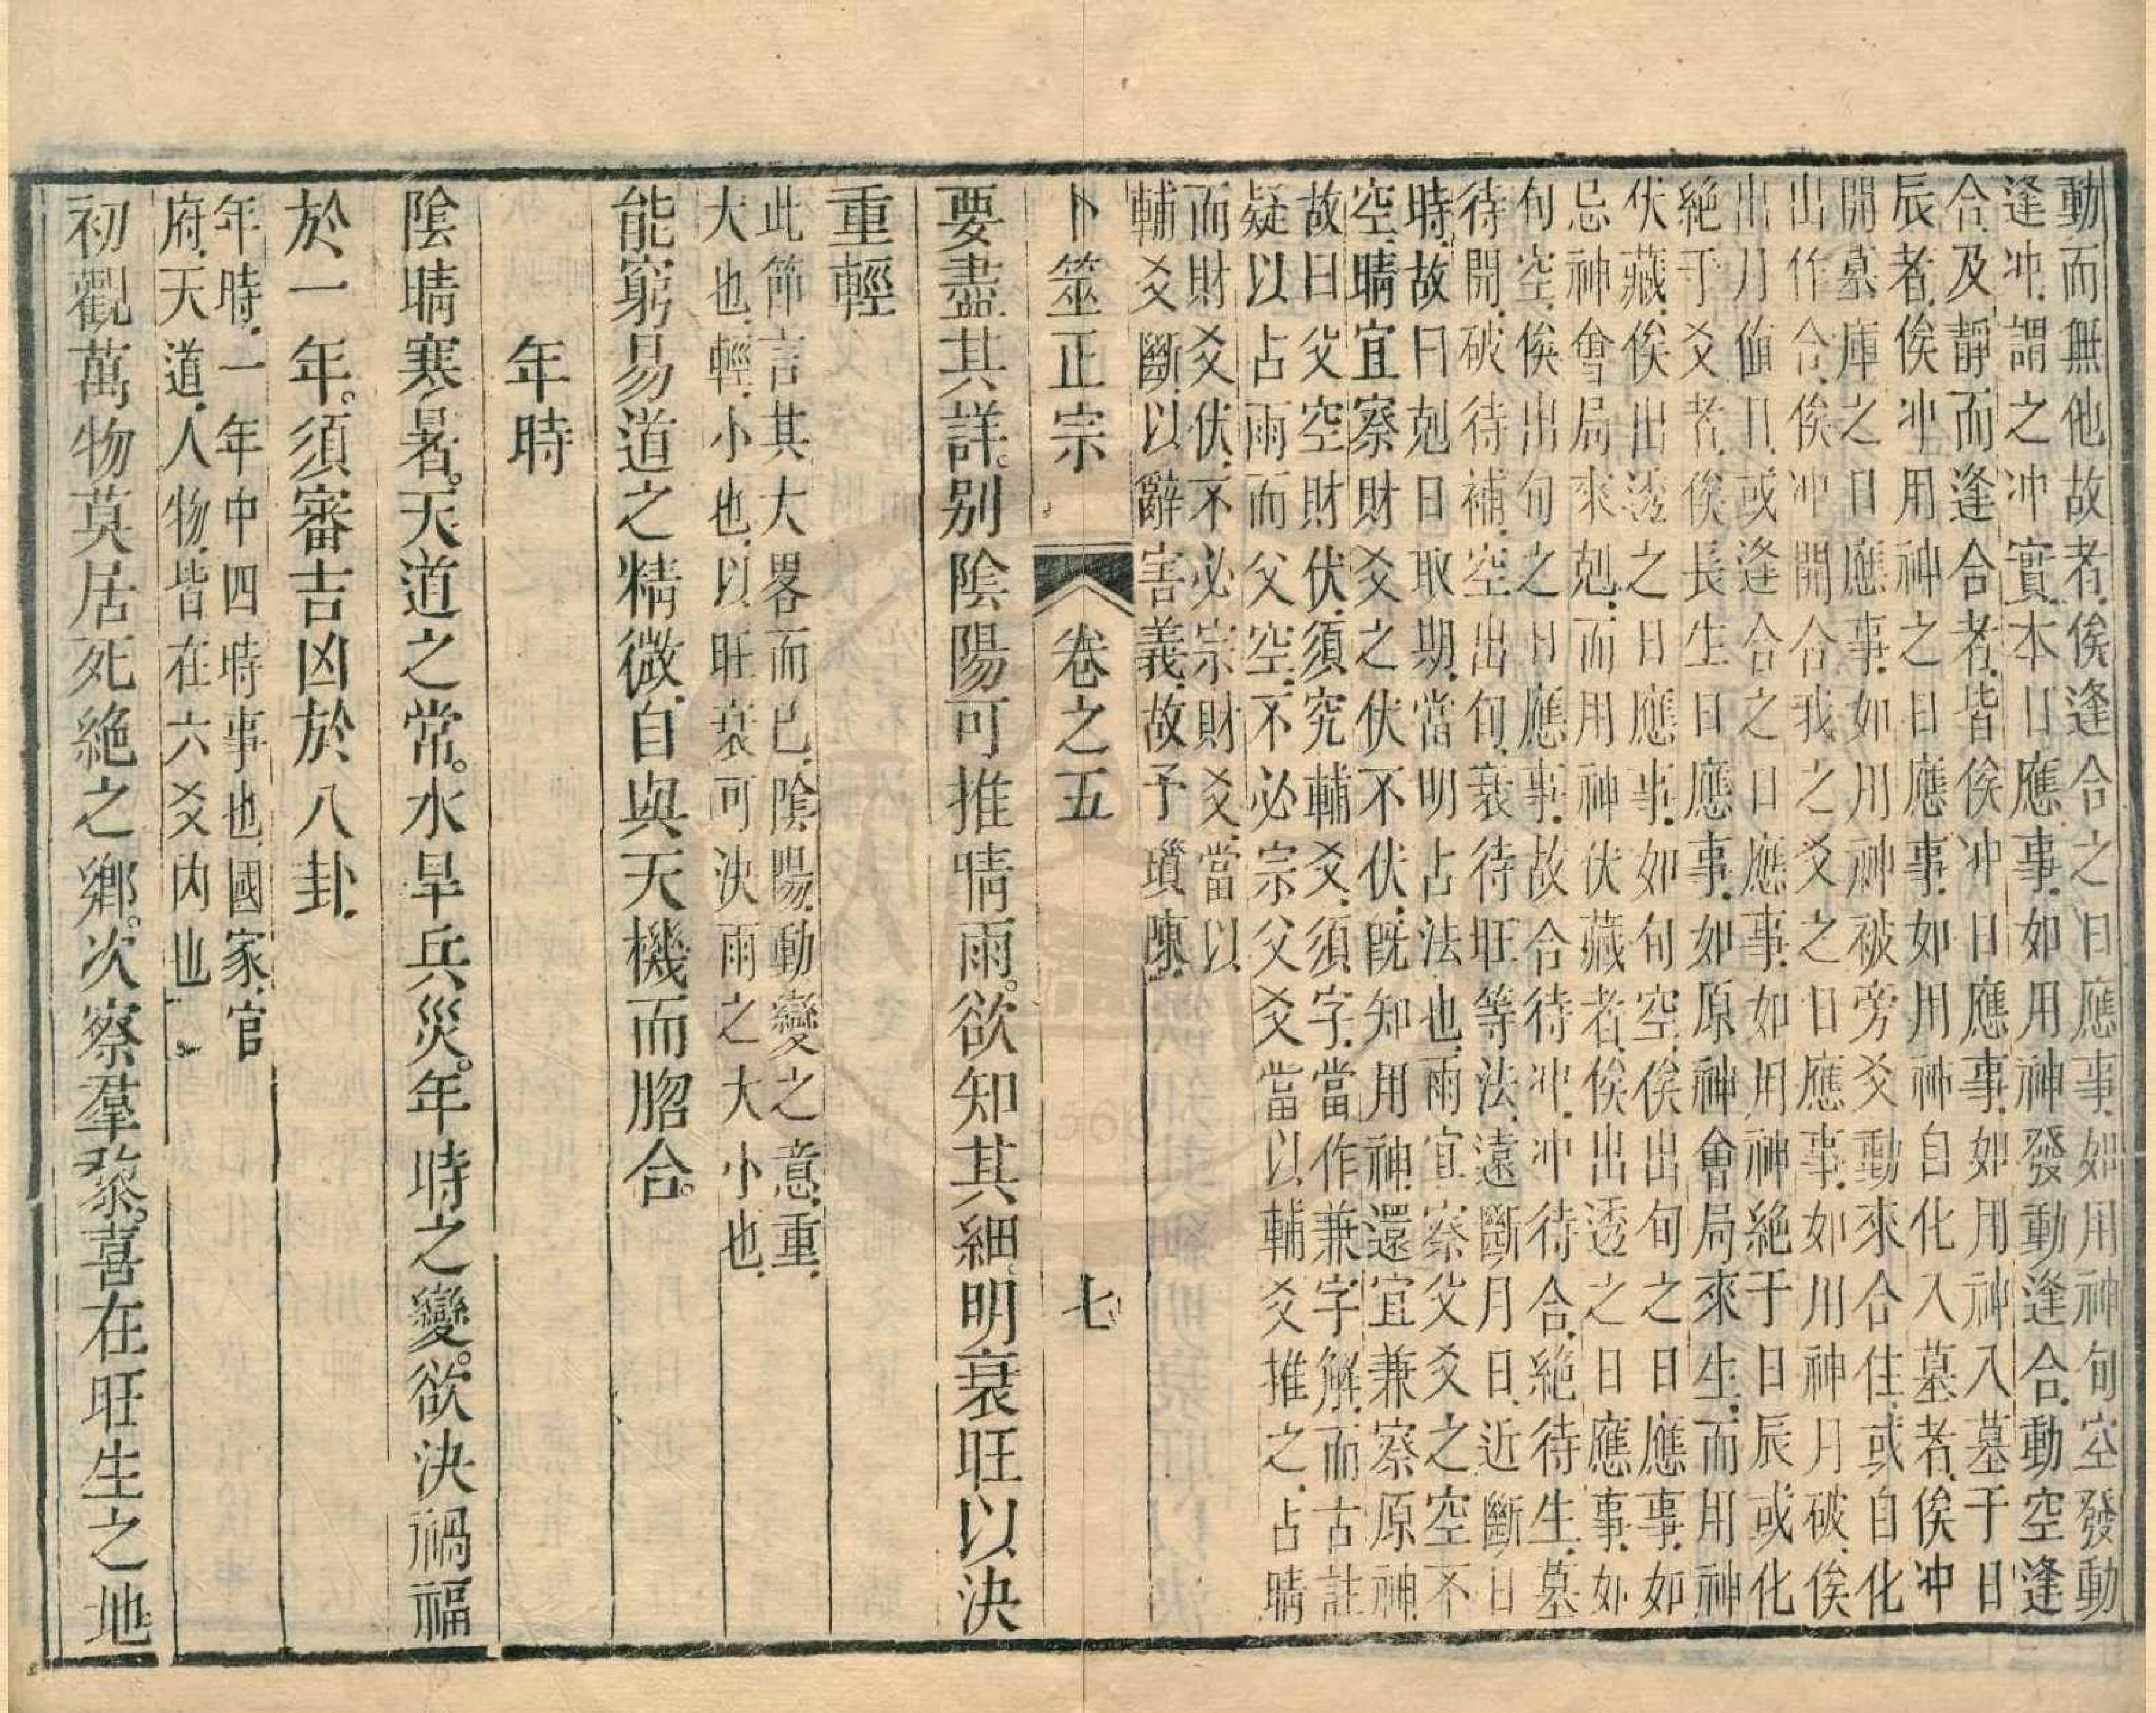 動而無他故者俟逢合之日應事如用神旬空發動
逢冲謂之冲實本日應事如用神發動逢合動空逢
合及靜而逢合者皆俟冲日應事如用神入墓于日
辰者俟冲用神之日應事如用神自化入墓者俟冲
開墓庫之日應事如用神破旁爻動來合住或自化
出作合俟冲開合我之爻之日應事如用神月破俟
出月値日或逢合之日應事如用神絶于日辰或化
絶于爻者俟長生日應事如原神會局來生而用神
伏藏俟出透之日應事如旬空俟出旬之日應事如
忌神會局來剋而用神伏藏者俟出透之日應事如
旬空俟出旬之日應事故合待冲冲待合絶待生墓
待開破待補空出旬衰待旺等法遠斷月日近斷日
時故曰剋日取期當明占法也雨宜察父爻之空不
空晴宜察財爻之伏不伏旣知用神還宜兼察原神
故曰父空財伏須究輔爻須字當作兼字解而古註
疑以占雨而父空不必宗父爻當以輔爻推之占晴
而財爻伏不必宗財爻當以
輔爻斷以辭害義故予瑣陳
卜筮正宗 卷之五 七
要盡其詳别陰陽可推晴雨。欲知其細明衰旺以決
重輕
此節言其大畧而已陰陽動變之意重
大也輕小也以旺衰可決雨之大小也
能窮易道之精微自與天機而脗合。
年時
陰晴寒暑。天道之常。水旱兵災。年時之變。欲決禍福
於一年。須審吉凶於八卦
年時一年中四時事也國家官
府天道人物皆在六爻内也
初觀萬物莫居死絶之鄉。次察羣黎。喜在旺生之地